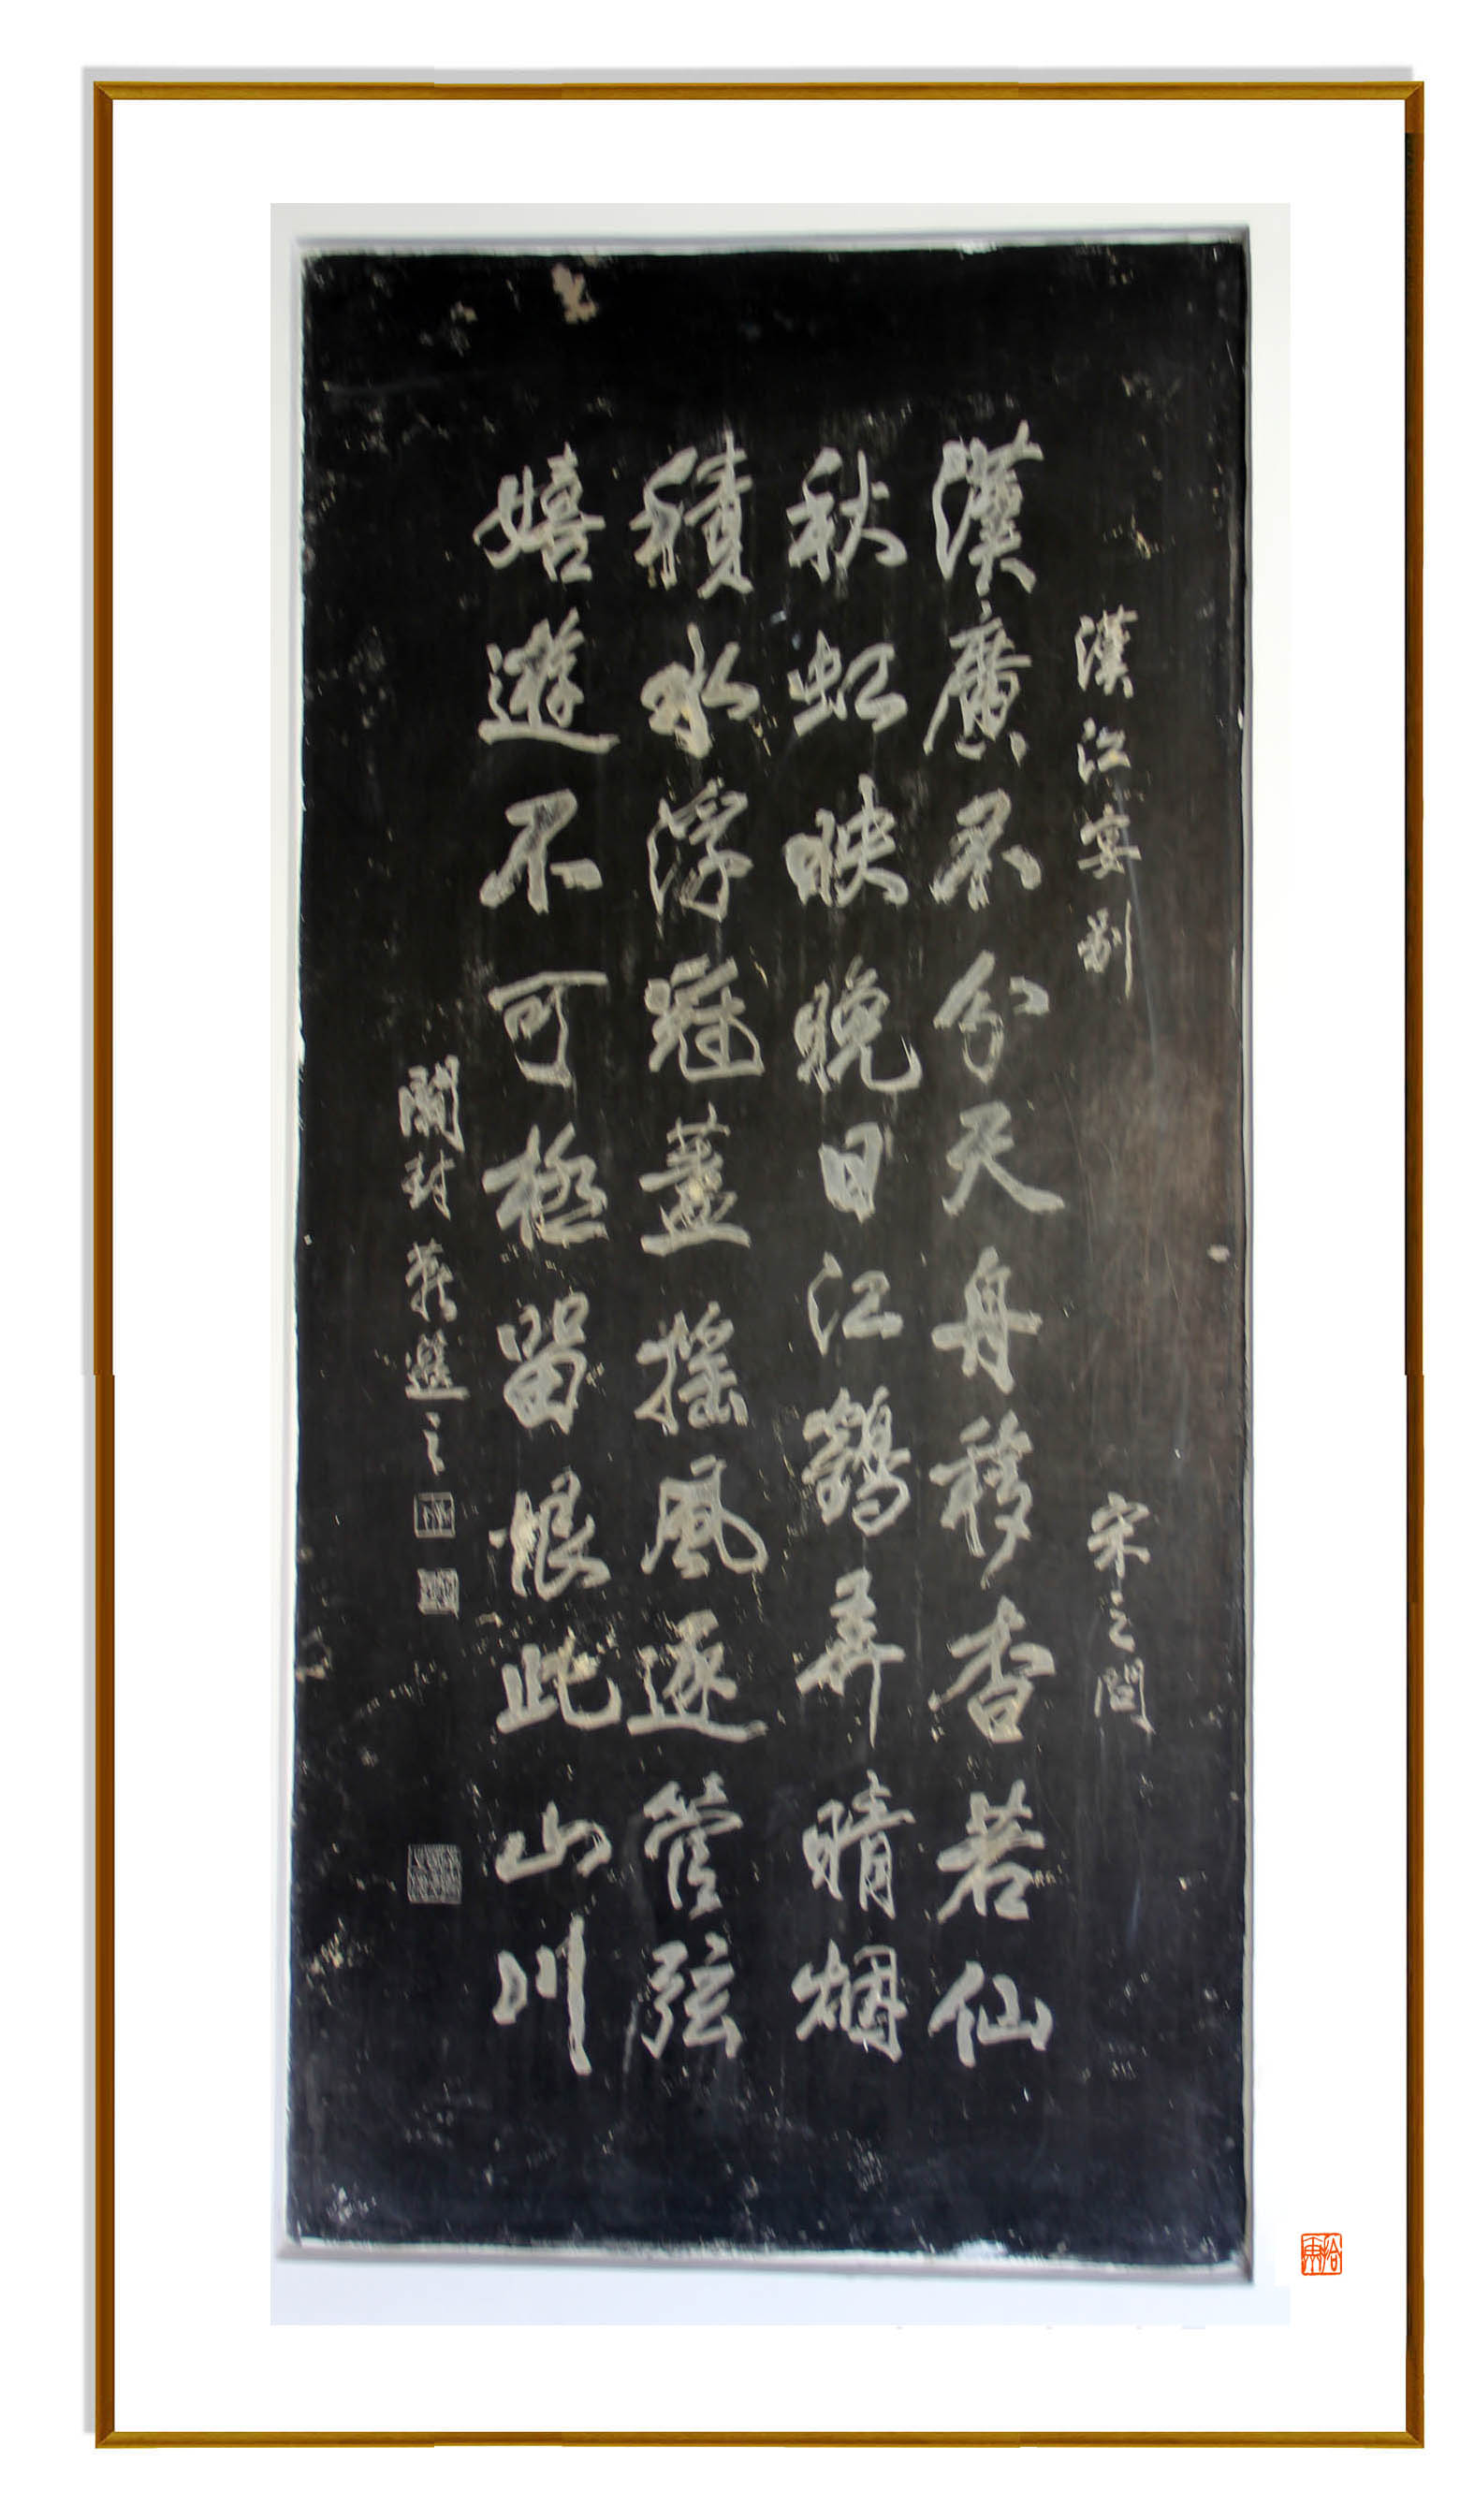 漢江宴別 宋之問
漢廣不分天舟移杳若仙
秋虹映晚日江鶴弄晴烟
積水浮冠蓋搖風逐管弦
嬉遊不可極留恨此山川
封 選之